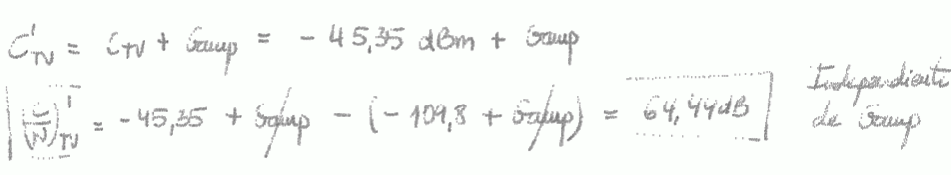 C'TV = CTV + Gamp = - 45,35 dBm + Gamp
(C/N)'TV = -45,35 + Gamp - (-109,8 + Gamp) = 64,44dB Independiente de Gamp